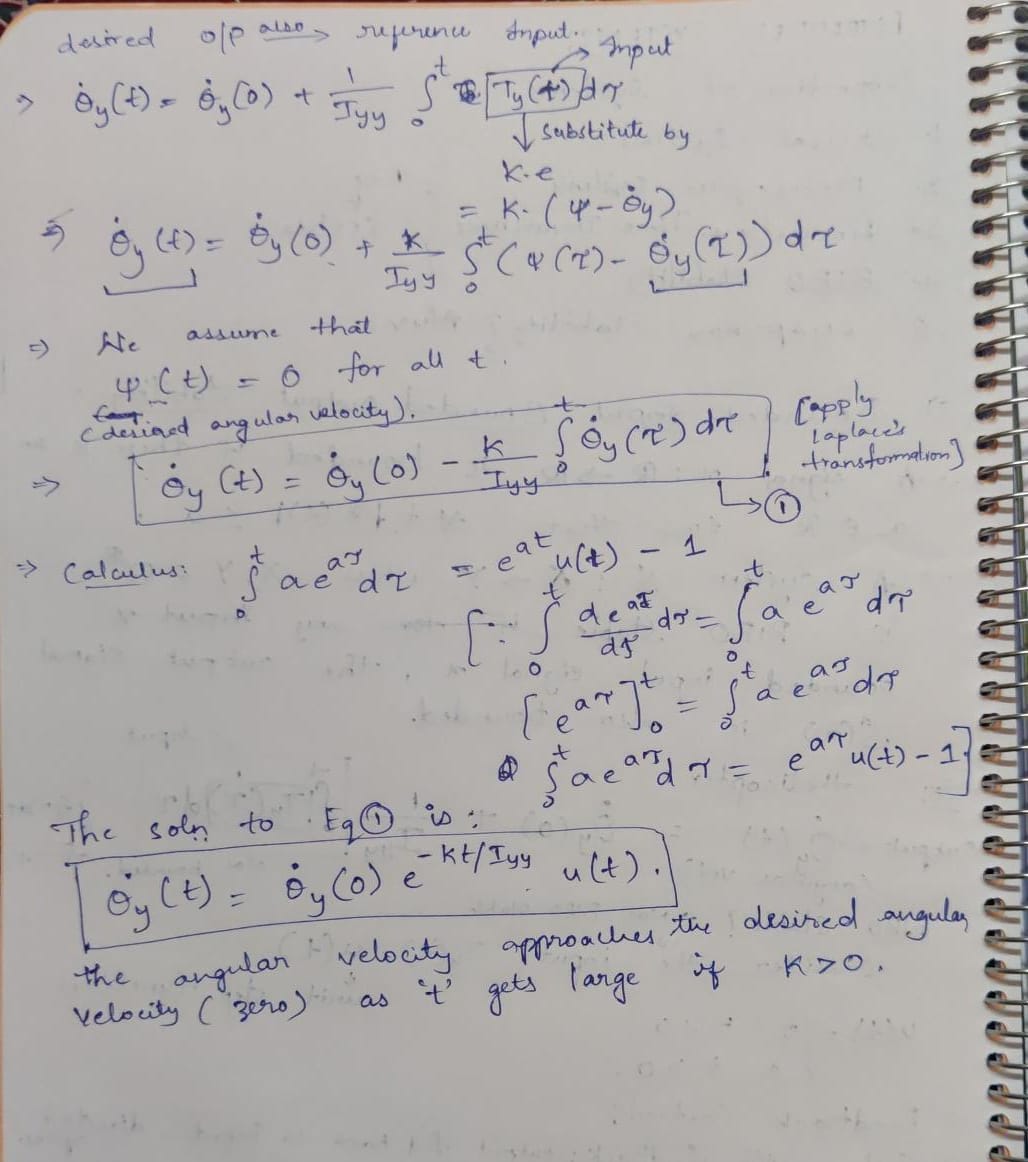 desired o/p also> reference Input.
→ Input
⇒ θ̇y(t) = θ̇y(0) + 1/Iyy ∫₀ᵗ [Ty(t)] dτ
↓ substitute by
K.e
= K.(ψ - θ̇y)
⇒ θ̇y(t) = θ̇y(0) + K/Iyy ∫₀ᵗ (ψ(τ) - θ̇y(τ)) dτ
⇒ We assume that
ψ(t) = 0 for all t.
(desired angular velocity).
⇒ θ̇y(t) = θ̇y(0) - K/Iyy ∫₀ᵗ θ̇y(τ) dτ [apply
laplace's
transformation]
↳ ①
⇒ Calculus: ∫₀ᵗ a e^aτ dτ = e^at u(t) - 1
[∵ ∫₀ᵗ d e^aτ/dτ dτ = ∫₀ᵗ a e^aτ dτ
[e^aτ]₀ᵗ = ∫₀ᵗ a e^aτ dτ
∫₀ᵗ a e^aτ dτ = e^aτ u(t) - 1]
The soln to Eq ① is:
θ̇y(t) = θ̇y(0) e^-Kt/Iyy u(t).
the angular velocity approaches the desired angular
velocity (zero) as 't' gets large if K>0.